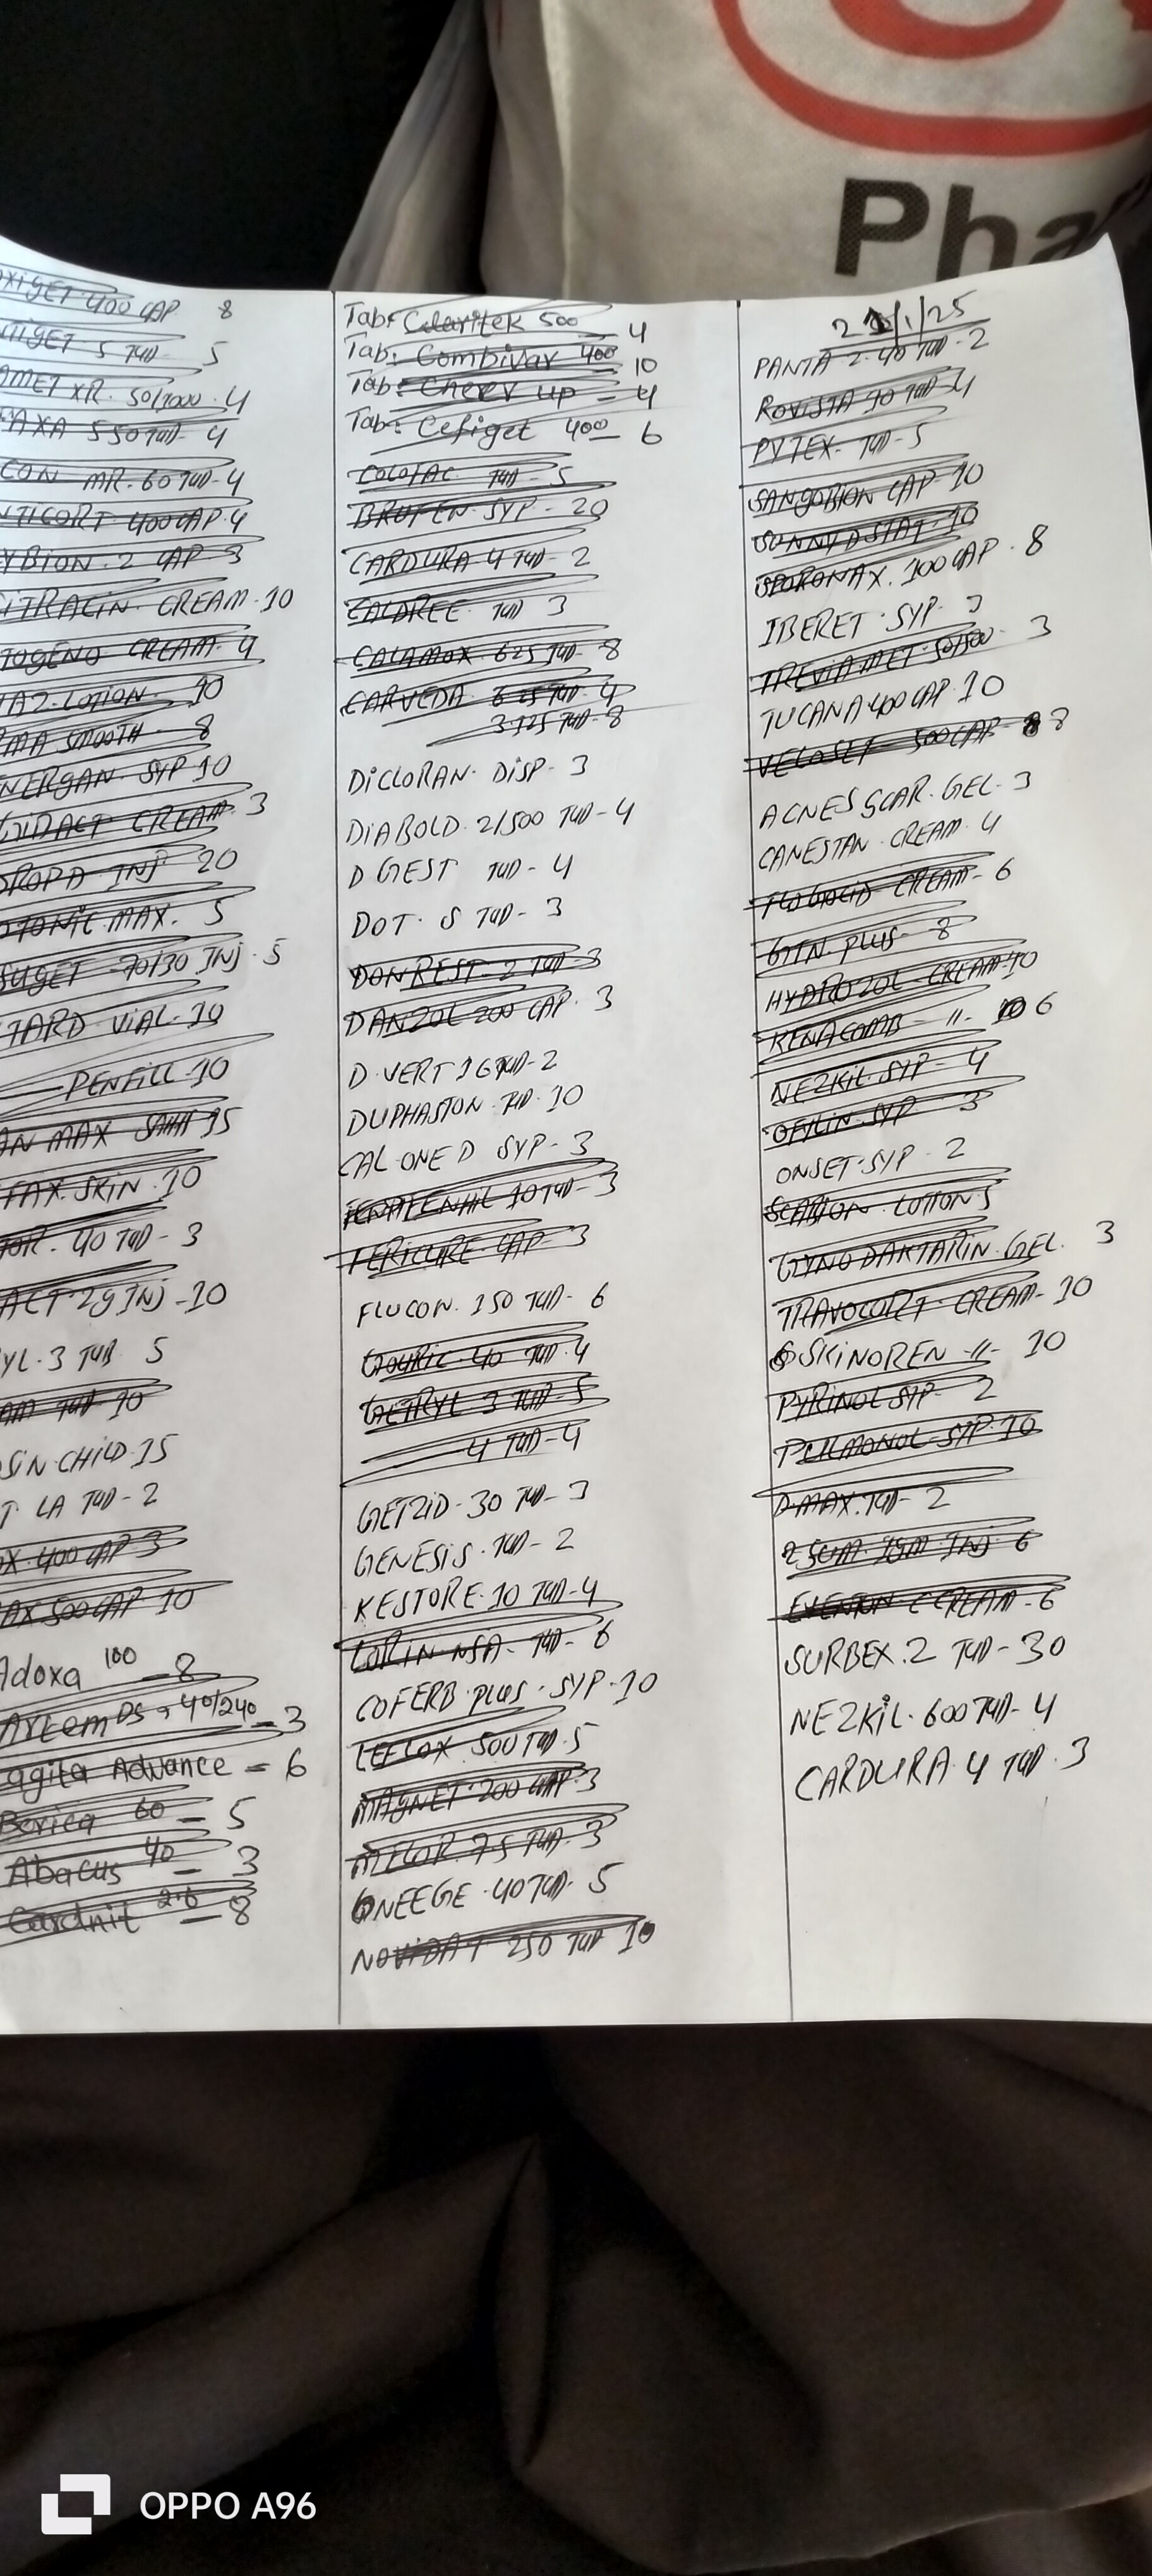 Pha
OXIGET 400 CAP 8
5 TAB 5
AMET XR. 50/1000. 4
AXA 550 TAB 4
CON MR. 60 TAB 4
TICORT 400 CAP. 4
YBION. 2 CAP 3
ITRACIN. CREAM. 10
TOGENO CREAM. 4
LOTION. 10
MA SMOOTH. 8
NERGAN. SYP 10
CREAM. 3
DROPD INJ 20
OTONIC MAX. 5
SUGET 70/30 INJ. 5
TARD VIAL. 10
PENFILL 10
AN MAX 15
FAX. SKIN. 10
TOR. 40 TAB - 3
ACT 2g INJ - 10
YL. 3 TAB 5
AM TAB 10
SIN. CHILD 15
T LA TAB - 2
OX. 400 CAP 3
AX 500 CAP 10
Adoxa 100 - 8
Artem DS 40/240 - 3
agita Advance - 6
Berica 60 - 5
Abacus 40 - 3
Cardnit 2.6 - 8
Tab: Claritek 500 - 4
Tab: Combivar 400 10
Tab: Cheer up - 4
Tab: Cefiget 400 - 6
COLOFAC TAB - 5
BRUFEN SYP - 20
CARDURA 4 TAB - 2
CALDREE TAB 3
CALAMOX 625 TAB - 8
CARVEDA 6.25 TAB - 4
3.125 TAB - 8
DiCLORAN. DiSP - 3
DiABOLD. 2/500 TAB - 4
D GEST TAB - 4
DOT. S TAB - 3
DONREST 2 TAB 3
DANZOL 200 CAP. 3
D. VERT 16 TAB - 2
DUPHASTON. TAB. 10
CAL ONE D SYP - 3
10 TAB - 3
FERICURE CAP 3
FLUCON. 150 TAB - 6
GOURIC. 40 TAB. 4
GETRYL 3 TAB 5
4 TAB - 4
GETZiD - 30 TAB - 3
GENESiS. TAB - 2
KESTORE. 10 TAB - 4
LORIN NSA. TAB - 6
COFERB PLUS. SYP. 10
LEFLOX. 500 TAB 5
MAGNET 200 CAP 3
MFLOR. 75 TAB. 3
NEEGE. 40 TAB. 5
NOViDAT 250 TAB 10
21/1/25
PANTA 2. 40 TAB - 2
ROViSTA 10 TAB - 4
PYTEX TAB - 5
SANGOBION CAP 10
SUNNY D STAT. 10
SPORONAX. 100 CAP. 8
IBERET SYP. 3
TREVIAMET 50/500 3
TUCANA 400 CAP 10
VELOSEF 500 CAP - 8
ACNES SCAR. GEL. 3
CANESTAN CREAM. 4
FLOGOCiD CREAM - 6
GTN. PLUS - 8
HYDROZOL CREAM. 10
KENACOMB - 11 - 6
NEZKiL SYP - 4
OFYLIN SYP 3
ONSET. SYP. 2
SCABION. LOTION 5
GYNO DAKTARiN. GEL. 3
TRAVOCORT CREAM - 10
SKiNOREN - 11 - 10
PYRiNOL SYP 2
PULMONOL SYP. 10
D-MAX. TAB - 2
2SUM 1GM INJ 6
EVENTON C CREAM - 6
SURBEX. 2 TAB - 30
NEZKiL. 600 TAB - 4
CARDURA 4 TAB. 3
OPPO A96